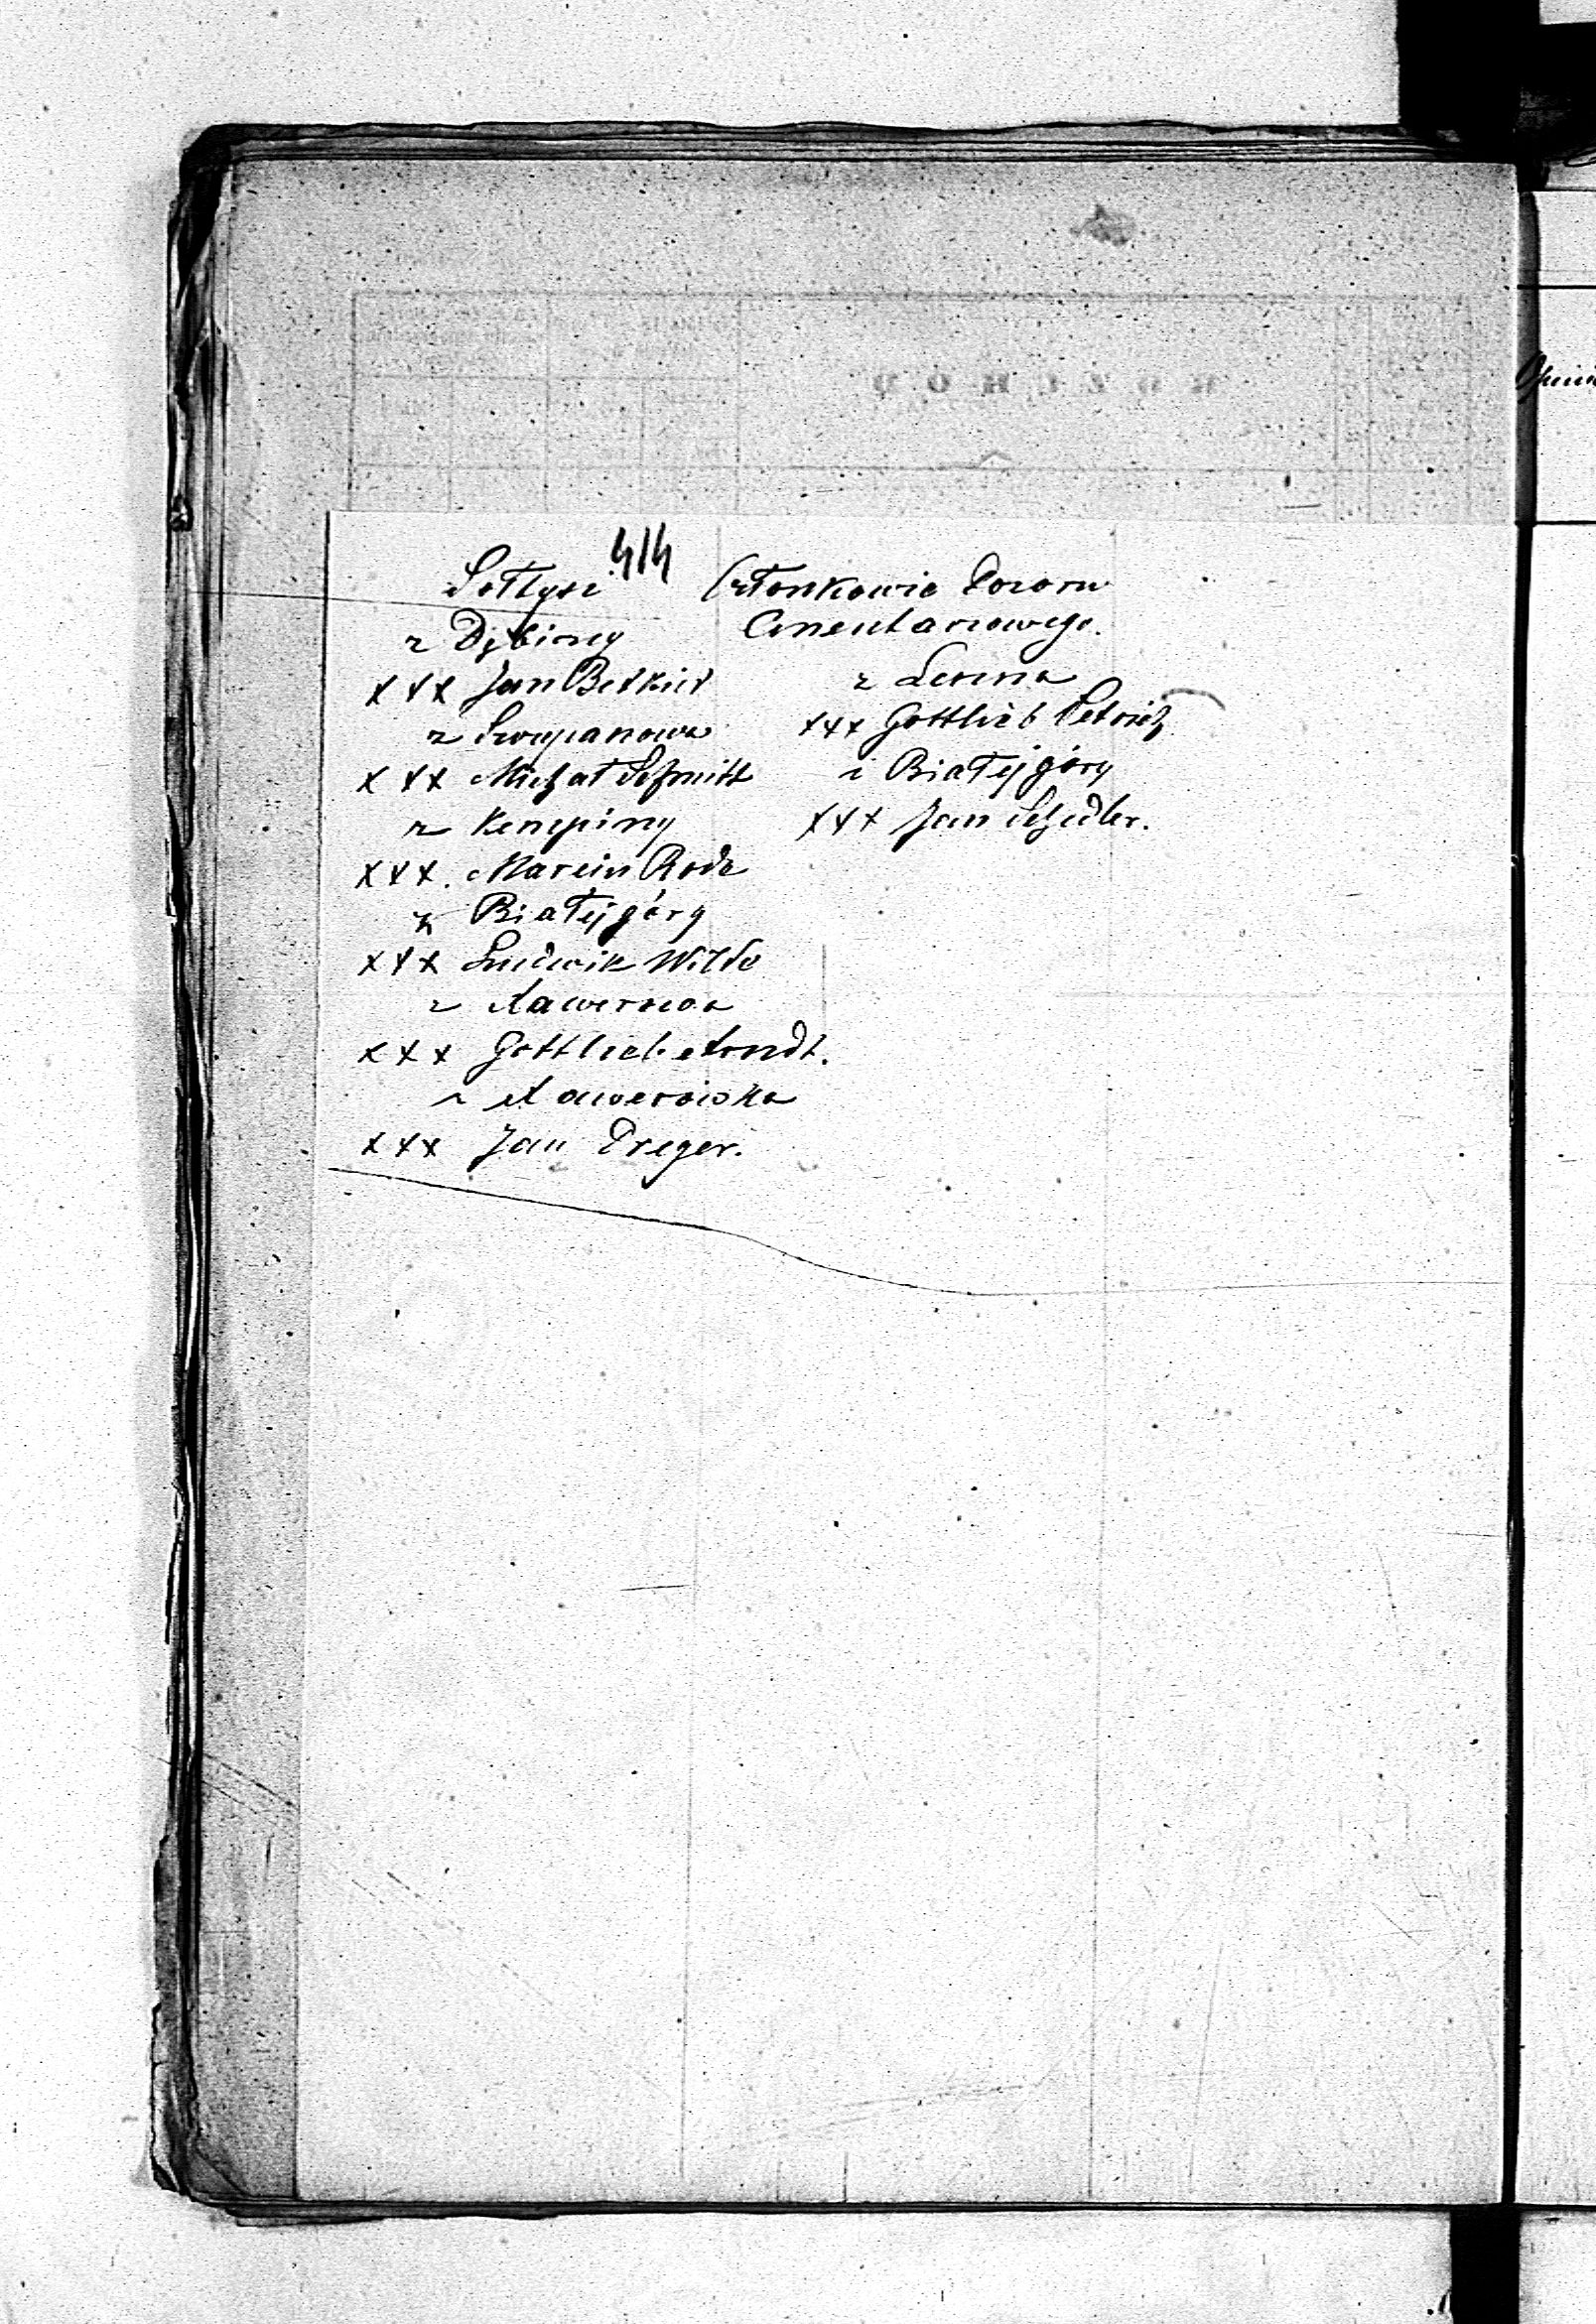 414
Sołtysi
z Dębiny
XXX Jan Betkier
z Szczepanowa
XXX Michał Schmitt
z Kempiny
XXX. Marcin Rode
z Białéjgóry
XXX Ludwik Wilde
z Ławerowa
XXX Gottlieb Arndt.
z Ławerówka
XXX Jan Preger.
Członkowie Dozoru
Cmentarnowego.
z Lesina
XXX Gottlieb Petrich
i Białéj góry
XXX Jan Schedler.